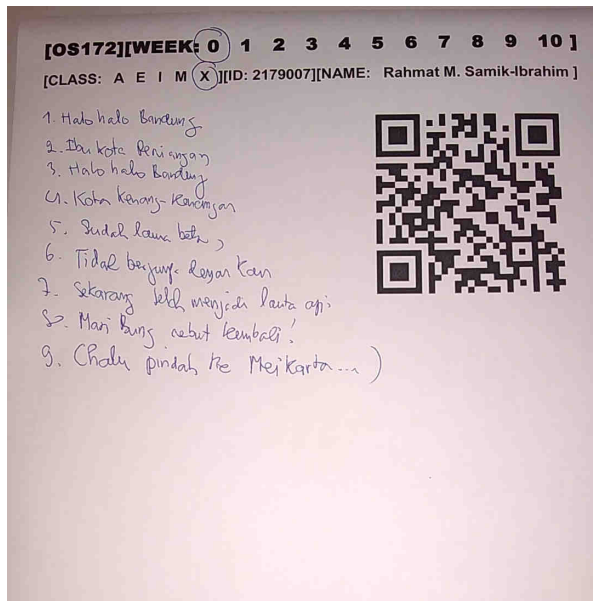 [OS172][WEEK: 0 1 2 3 4 5 6 7 8 9 10 ]
[CLASS: A E I M X ][ID: 2179007][NAME: Rahmat M. Samik-Ibrahim ]
1. Halo halo Bandung
2. Ibu kota Periangan
3. Halo halo Bandung
4. Kota Kenang-Kenangan
5. Sudah lama beta,
6. Tidak berjumpa dengan Kau
7. Sekarang telah menjadi lauta api
8. Mari Bung rebut kembali!
9. Chalu pindah ke Meikarta...)